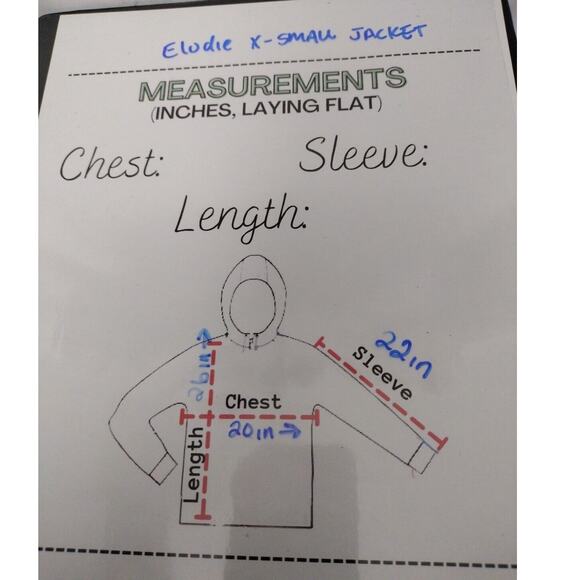 Elodie X-SMALL JACKET
MEASUREMENTS
(INCHES, LAYING FLAT)
Chest: Sleeve:
Length:
26in
22in
Sleeve
Chest
20in
Length